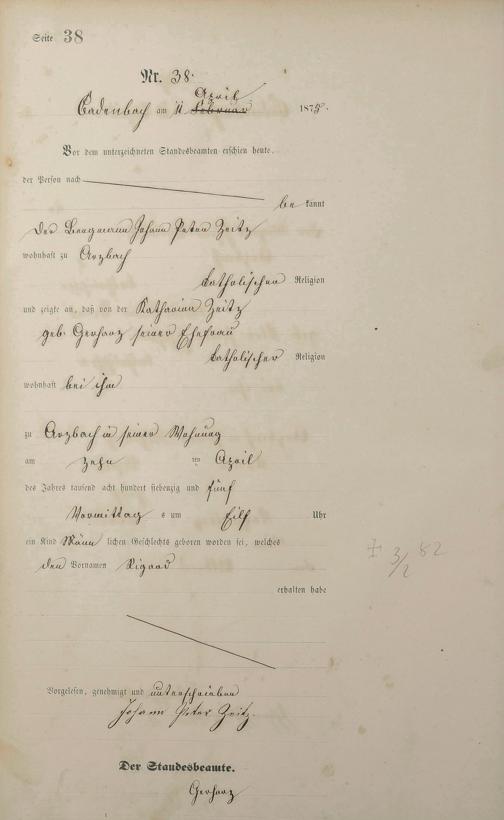 Seite 38
Nr. 38.
April
Cadenbach am 11 Februar 1875.
Vor dem unterzeichneten Standesbeamten erschien heute,
der Person nach
be kannt
der Bergmann Johann Peter Zeitz
wohnhaft zu Arzbach
katholischen Religion
und zeigte an, daß von der Katharina Zeitz
geb. Gerharz seiner Ehefrau
katholischer Religion
wohnhaft bei ihm
zu Arzbach in seiner Wohnung
am zehn ten April
des Jahres tausend acht hundert siebenzig und fünf
Vormittag s um Eilf Uhr
ein Kind Männ lichen Geschlechts geboren worden sei, welches
den Vornamen
erhalten habe
Vorgelesen, genehmigt und unterschrieben
Johann Peter Zeitz.
Der Standesbeamte.
Gerharz
3/2 82